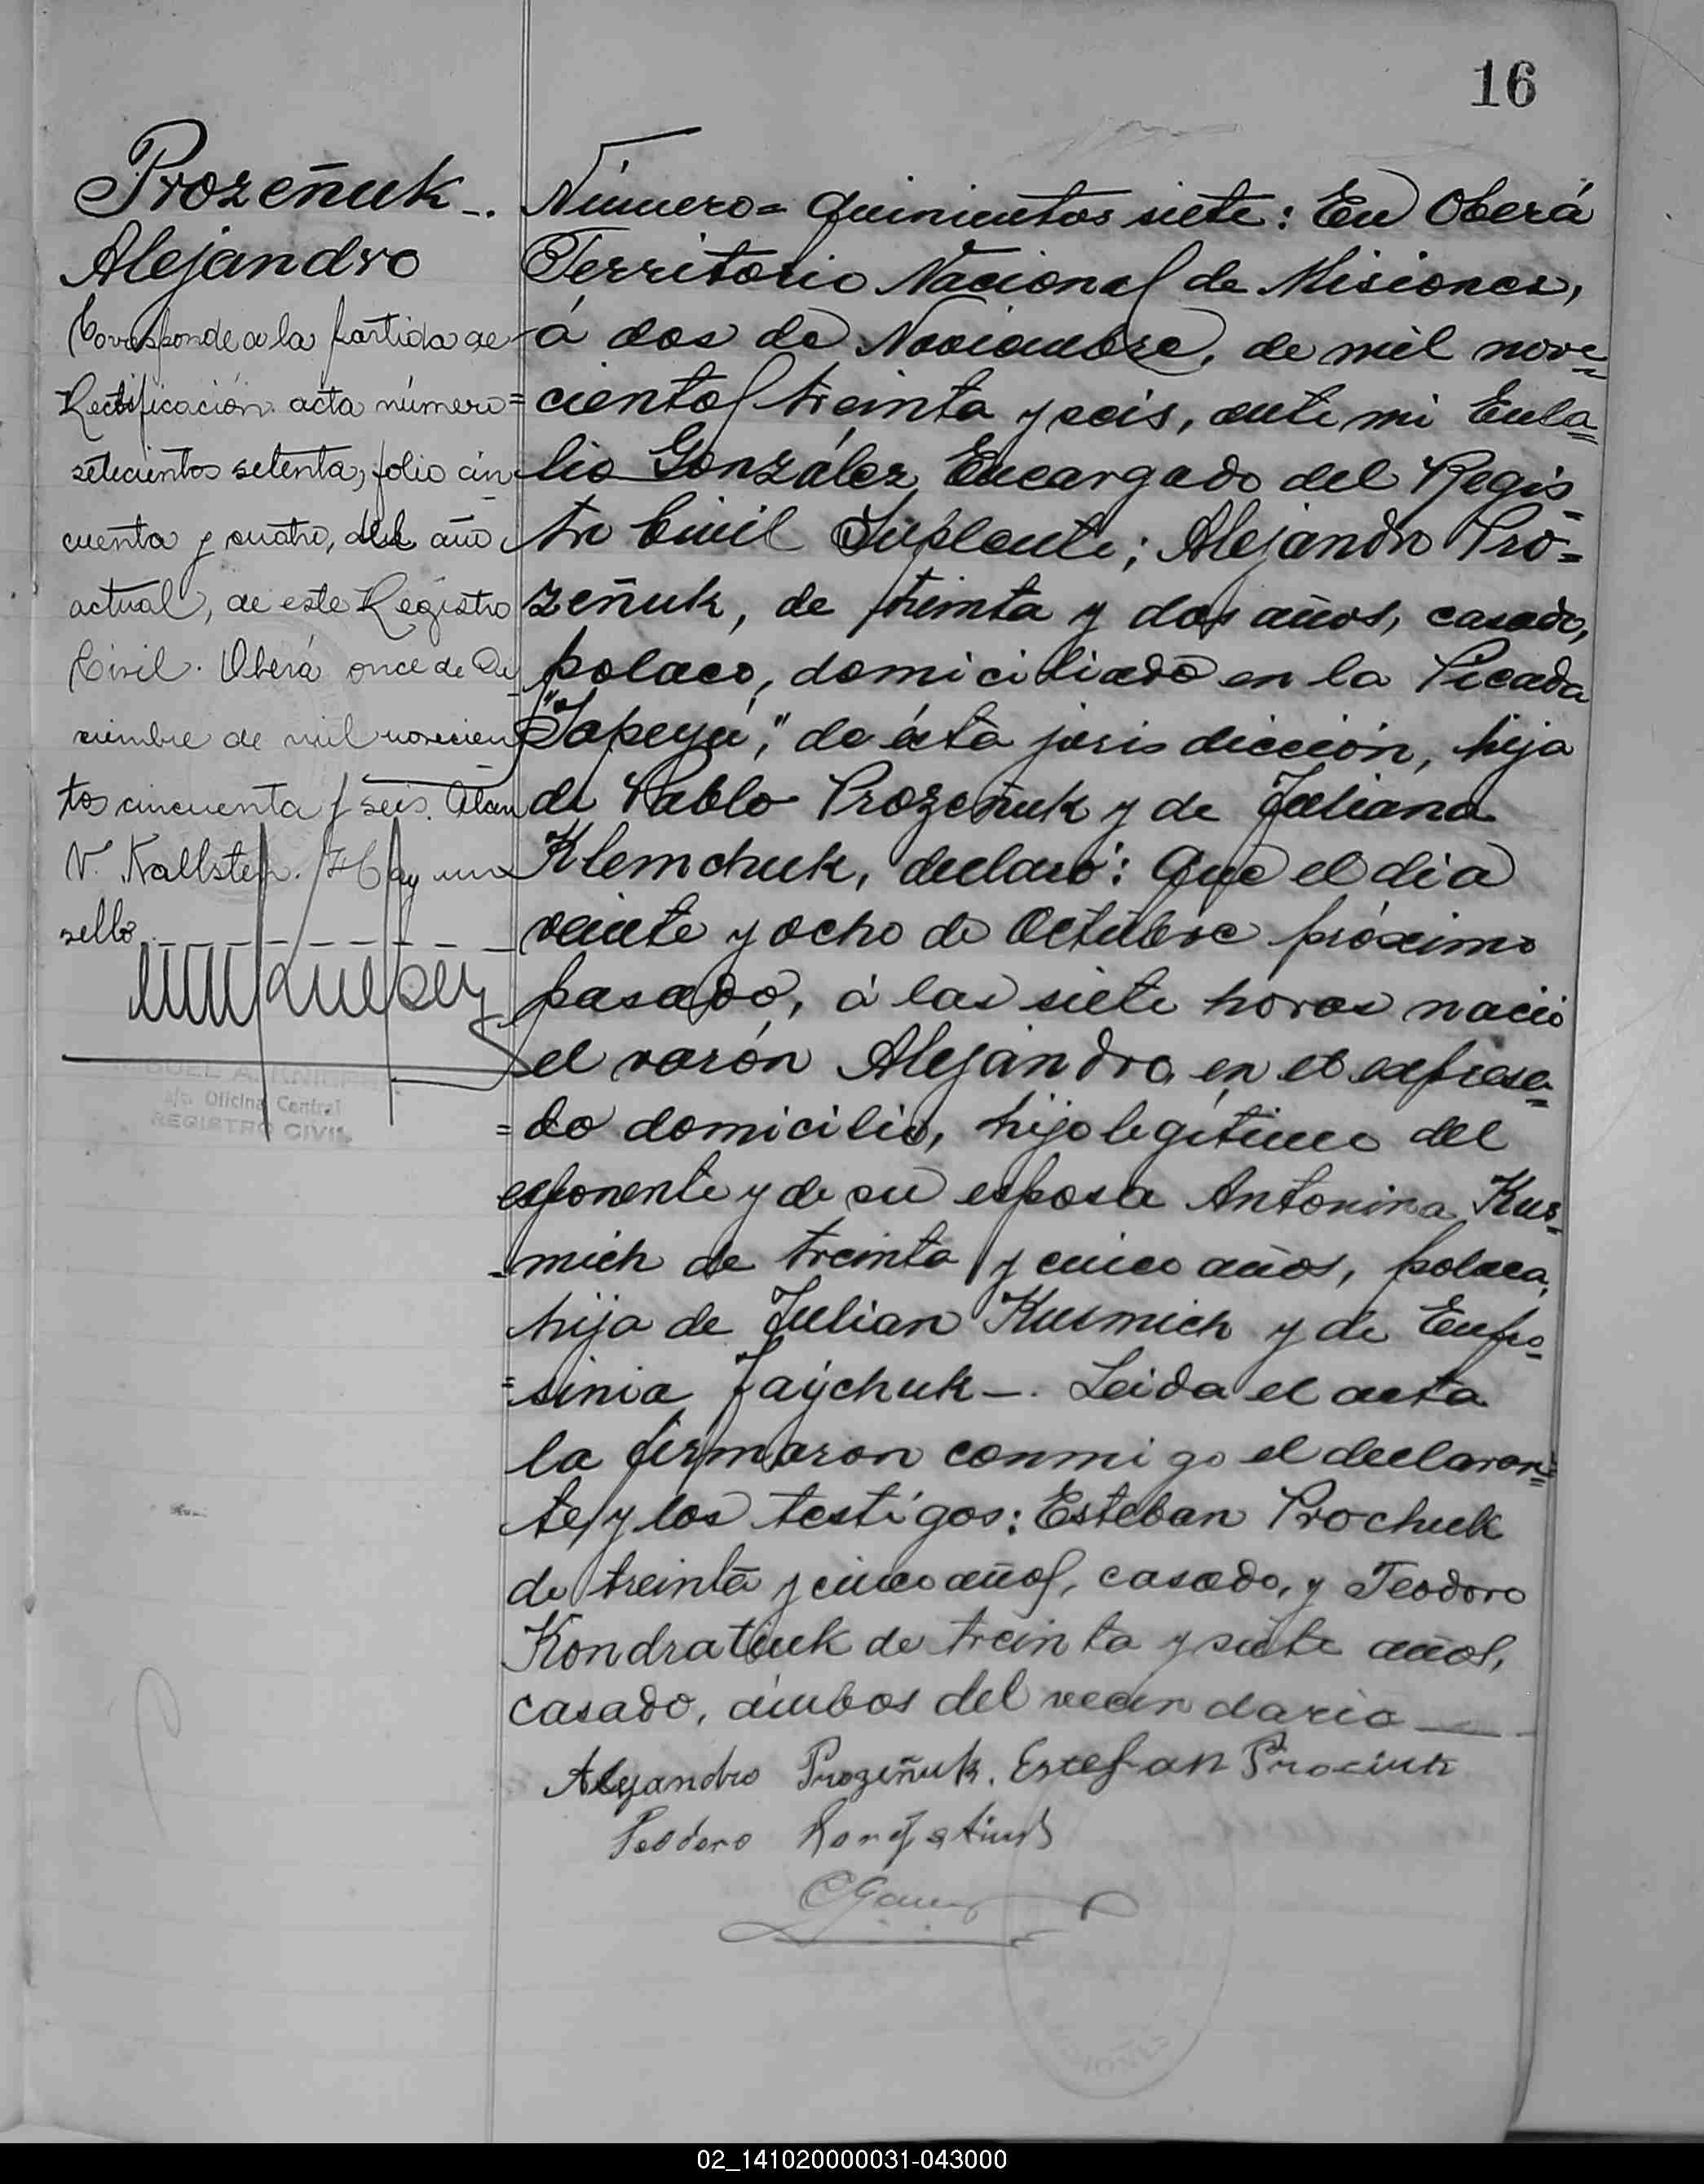 16
Prozeñuk -.
Alejandro
Corresponde a la partida de
Rectificación acta número
setecientos setenta, folio cin
cuenta y cuatro, del año
actual, de este Registro
Civil. Oberá once de Di
ciembre de mil novecien
tos cincuenta y seis. Alan
V. Kallsten. Hay un
sello
a/c. Oficina Central
REGISTRO CIVIL
Número = quinientos siete: En Oberá
Territorio Nacional de Misiones,
á dos de Noviembre, de mil nove=
=cientos treinta y seis, ante mi Eula=
lio González Encargado del Regis=
tro Civil Suplente; Alejandro Pro=
zeñuk, de treinta y dos años, casado,
polaco, domiciliado en la Picada
"Yapeyú," de ésta jurisdicción, hijo
de Pablo Prozeñuk y de Juliana
Klemchuk, declaró: Que el dia
veinte y ocho de Octubre próximo
pasado, á las siete horas nació
el varón Alejandro, en el expresa=
=do domicilio, hijo legítimo del
exponente y de su esposa Antonina Kus=
=mich de treinta y cinco años, polaca,
hija de Julian Kusmich y de Eufro=
=sinia Jaychuk -. Leida el acta
la firmaron conmigo el declaran=
te y los testigos: Esteban Prochuk
de treinta y cinco años, casado, y Teodoro
Kondratiuk de treinta y siete años,
casado, ámbos del vecindario
Alejandro Prozeñuk. Estefan Prociuk
Teodoro
02_141020000031-043000